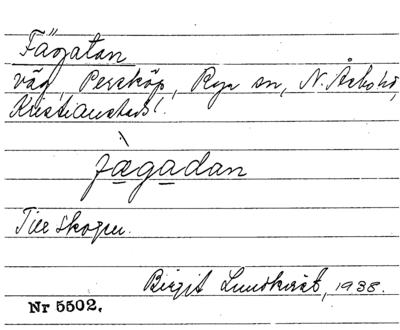 Fägatan
väg, Perstorp, Rya sn, N. Åsbo hd,
Kristianstads l.
fàgadan
Till skogen.
Birgit Lundkvist, 1938.
Nr 5502.